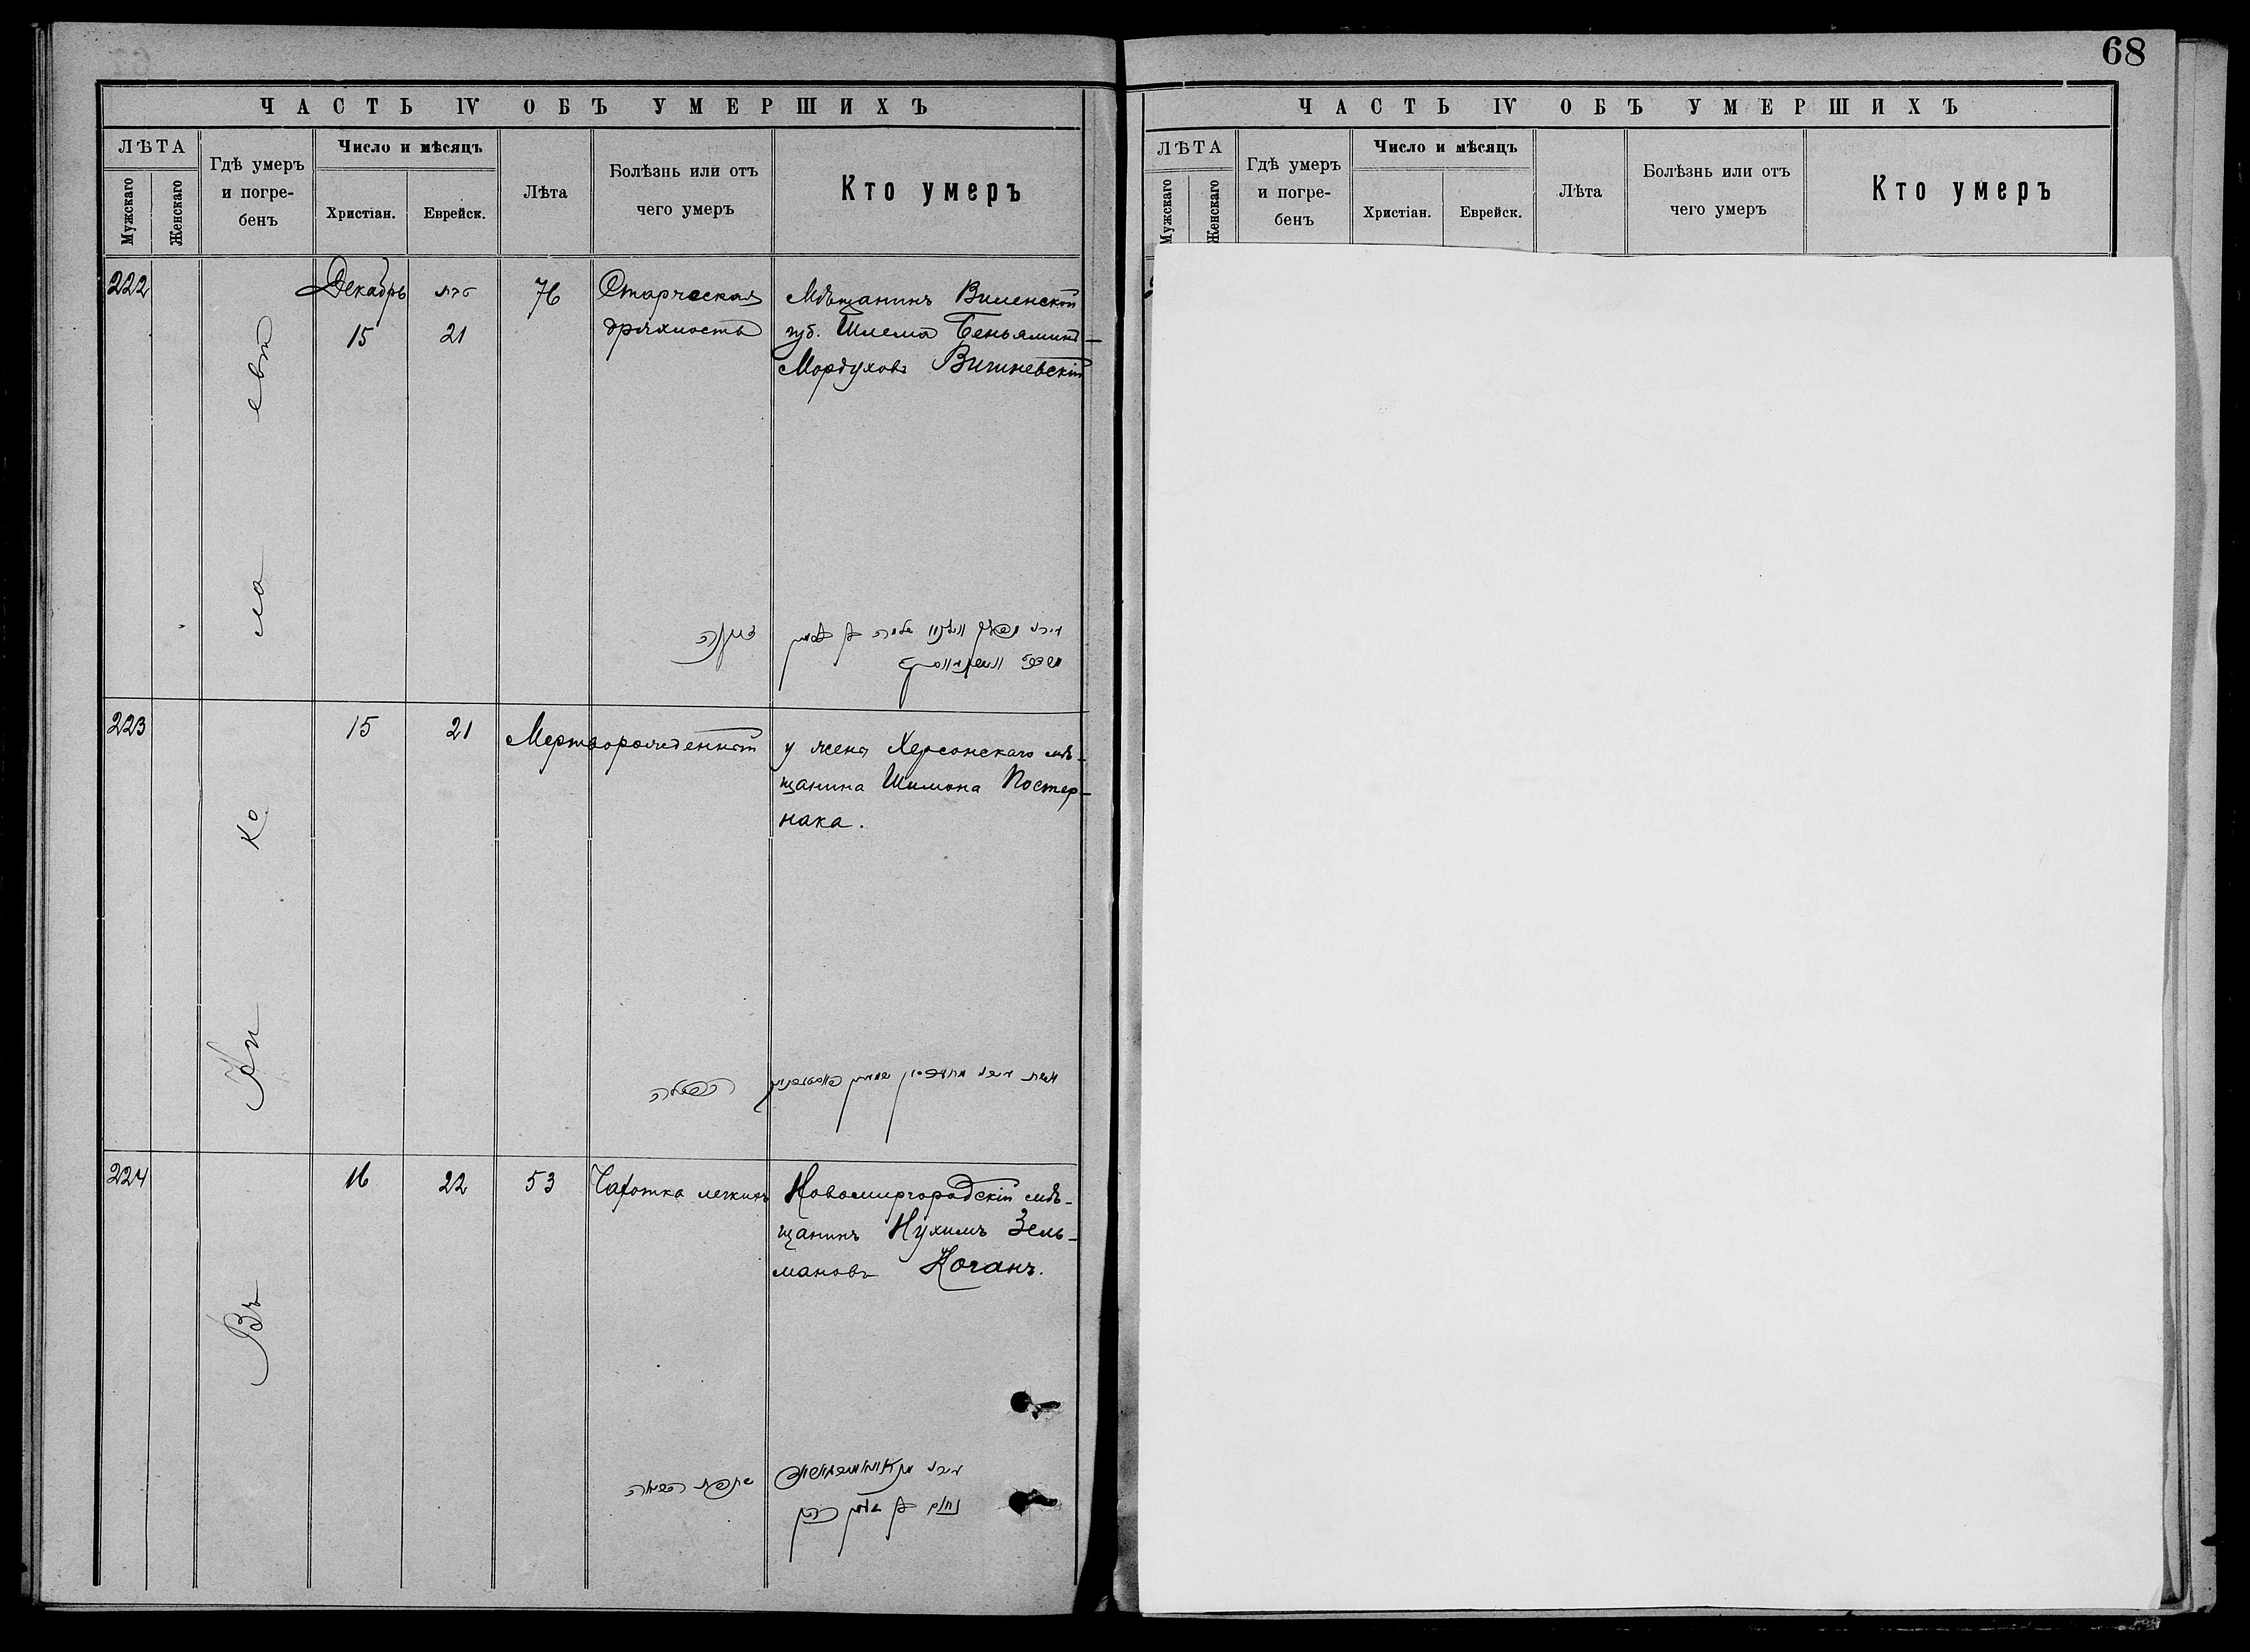 68
ЧАСТЬ IV ОБЪ УМЕРШИХЪ
ЛѢТА
Мужскаго
Женскаго
Гдѣ умеръ
и погре-
бенъ
Число и мѣсяцъ
Христіан.
Еврейск.
Лѣта
Болѣзнь или отъ
чего умеръ
Кто умеръ
Въ Ни ко ла евѣ
222
Декабрь
15
טבת
21
76
Старческая
дряхлость
Мѣщанинъ Виленской
губ. Шлема Беньяминъ-
Мордуховъ Вишневскій
זקנה
223
15
21
Мертворожденный
у жены Херсонскаго мѣ-
щанина Шимона Постер-
нака.
224
16
22
53
Чахотка легкихъ
Новомиргородскій мѣ-
щанинъ Нухимъ Зель-
мановъ Коганъ.
נחום בן זלמן כהן
ЧАСТЬ IV ОБЪ УМЕРШИХЪ
ЛѢТА
Мужскаго
Женскаго
Гдѣ умеръ
и погре-
бенъ
Число и мѣсяцъ
Христіан.
Еврейск.
Лѣта
Болѣзнь или отъ
чего умеръ
Кто умеръ